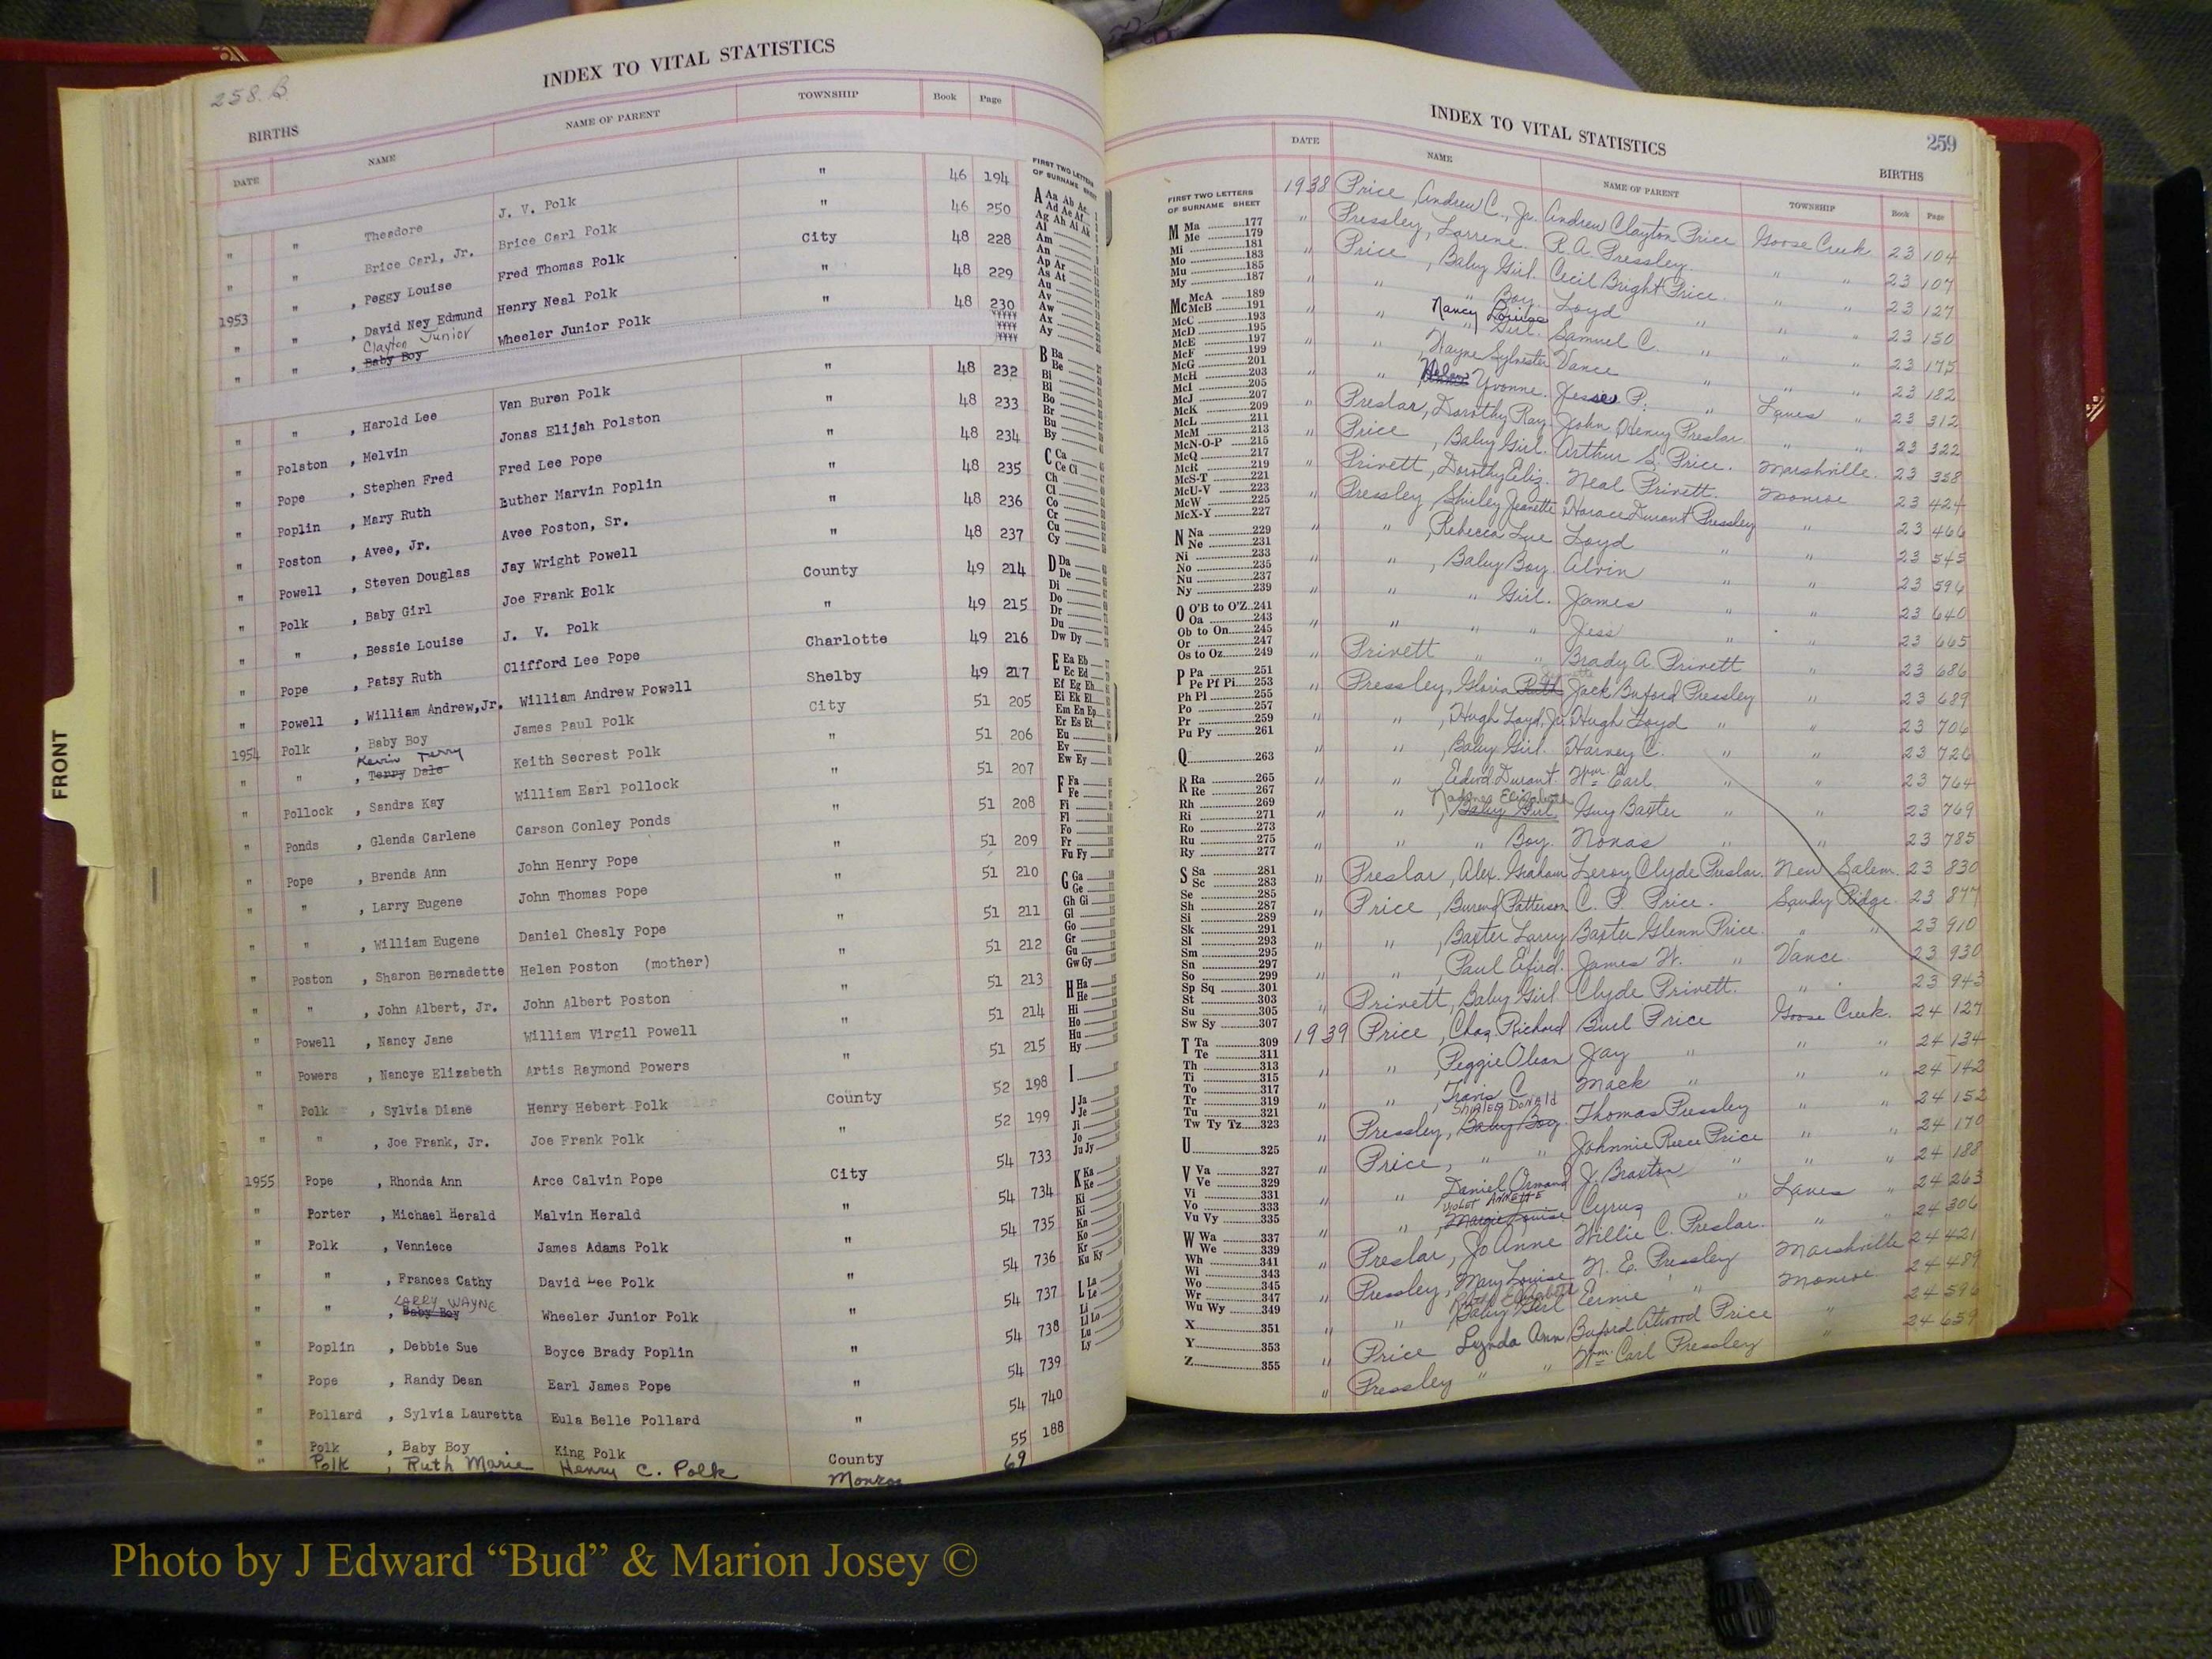 258.B
INDEX TO VITAL STATISTICS
BIRTHS
DATE NAME NAME OF PARENT TOWNSHIP Book Page
" 46 194
" " Theodore J. V. Polk " 46 250
" " Brice Carl, Jr. Brice Carl Polk City 48 228
1953 " , Peggy Louise Fred Thomas Polk " 48 229
" " , David Ney Edmund Henry Neal Polk " 48 230
Clayton Junior
" " , Baby Boy Wheeler Junior Polk
" 48 232
" " , Harold Lee Van Buren Polk " 48 233
" Polston , Melvin Jonas Elijah Polston " 48 234
" Pope , Stephen Fred Fred Lee Pope " 48 235
" Poplin , Mary Ruth Buther Marvin Poplin " 48 236
" Poston , Avee, Jr. Avee Poston, Sr. " 48 237
" Powell , Steven Douglas Jay Wright Powell County 49 214
" Polk , Baby Girl Joe Frank Polk " 49 215
" " , Bessie Louise J. V. Polk Charlotte 49 216
" Pope , Patsy Ruth Clifford Lee Pope Shelby 49 217
" Powell , William Andrew,Jr. William Andrew Powell City 51 205
1954 Polk , Baby Boy James Paul Polk " 51 206
Kevin Terry
" " , Terry Dale Keith Secrest Polk " 51 207
" Pollock , Sandra Kay William Earl Pollock " 51 208
" Ponds , Glenda Carlene Carson Conley Ponds " 51 209
" Pope , Brenda Ann John Henry Pope " 51 210
" " , Larry Eugene John Thomas Pope " 51 211
" " , William Eugene Daniel Chesly Pope " 51 212
" Poston , Sharon Bernadette Helen Poston (mother) " 51 213
" " , John Albert, Jr. John Albert Poston " 51 214
" Powell , Nancy Jane William Virgil Powell " 51 215
" Powers , Nancye Elizabeth Artis Raymond Powers 52 198
" Polk , Sylvia Diane Henry Hebert Polk County 52 199
" " , Joe Frank, Jr. Joe Frank Polk " 54 733
1955 Pope , Rhonda Ann Arce Calvin Pope City 54 734
" Porter , Michael Herald Malvin Herald " 54 735
" Polk , Venniece James Adams Polk " 54 736
" " , Frances Cathy David Lee Polk " 54 737
LARRY WAYNE
" " , Baby Boy Wheeler Junior Polk " 54 738
" Poplin , Debbie Sue Boyce Brady Poplin " 54 739
" Pope , Randy Dean Earl James Pope " 54 740
" Pollard , Sylvia Lauretta Eula Belle Pollard " 55 188
" Polk , Baby Boy King Polk County 69
" Polk , Ruth Marie Henry C. Polk Monroe
FIRST TWO LETTERS
OF SURNAME SHEET
A Aa Ab Ac
Ad Ae Af
Ag Ah Ai Ak
Al
Am
An
Ap Ar
As At
Au
Av
Aw
Ax
Ay
B Ba
Be
Bi
Bl
Bo
Br
Bu
By
C Ca
Ce Ci
Ch
Cl
Co
Cr
Cu
Cy
D Da
De
Di
Do
Dr
Du
Dw Dy
E Ea Eb
Ec Ed
Ef Eg Eh
Ei Ek El
Em En Ep
Er Es Et
Eu
Ev
Ew Ey
F Fa
Fe
Fi
Fl
Fo
Fr
Fu Fy
G Ga
Ge
Gh Gi
Gl
Go
Gr
Gu
Gw Gy
H Ha
He
Hi
Ho
Hu
Hy
I
J Ja
Je
Ji
Jo
Ju Jy
K Ka
Ke
Ki
Kl
Kn
Ko
Kr
Ku Ky
L La
Le
Li
Ll Lo
Lu
Ly
FRONT
INDEX TO VITAL STATISTICS
259
BIRTHS
DATE NAME NAME OF PARENT TOWNSHIP Book Page
FIRST TWO LETTERS
OF SURNAME SHEET
M Ma 177
Me 179
Mi 181
Mo 183
Mu 185
My 187
Mc McA 189
McB 191
McC 193
McD 195
McE 197
McF 199
McG 201
McH 203
McI 205
McJ 207
McK 209
McL 211
McM 213
McN-O-P 215
McQ 217
McR 219
McS-T 221
McU-V 223
McW 225
McX-Y 227
N Na 229
Ne 231
Ni 233
No 235
Nu 237
Ny 239
O O'B to O'Z 241
Oa 243
Ob to On 245
Or 247
Os to Oz 249
P Pa 251
Pe Pf Pi 253
Ph Pl 255
Po 257
Pr 259
Pu Py 261
Q 263
R Ra 265
Re 267
Rh 269
Ri 271
Ro 273
Ru 275
Ry 277
S Sa 281
Sc 283
Se 285
Sh 287
Si 289
Sk 291
Sl 293
Sm 295
Sn 297
So 299
Sp Sq 301
St 303
Su 305
Sw Sy 307
T Ta 309
Te 311
Th 313
Ti 315
To 317
Tr 319
Tu 321
Tw Ty Tz 323
U 325
V Va 327
Ve 329
Vi 331
Vo 333
Vu Vy 335
W Wa 337
We 339
Wh 341
Wi 343
Wo 345
Wr 347
Wu Wy 349
X 351
Y 353
Z 355
1938 Price , Andrew C., Jr. Andrew Clayton Price Goose Creek 23 104
" Pressley, Larrene. R. A. Pressley. " " 23 107
" Price , Baby Girl. Cecil Bright Price. " " 23 127
" " " Boy. Loyd " " " 23 150
Nancy Louise
" " " Girl. Samuel C. " " " 23 175
" " , Wayne Sylvester Vance " " " 23 182
" " , Yvonne. Jesse P. " Lanes " 23 312
" Preslar, Dorothy Ray. John Henry Preslar " " 23 322
" Price , Baby Girl. Arthur S. Price. Marshville. 23 338
" Privett, Dorothy Eliz. Neal Privett. Monroe 23 424
" Pressley, Shirley Jeanette Horace Durant Pressley " 23 466
" " , Rebecca Sue Loyd " " 23 545
" " , Baby Boy. Alvin " " 23 596
" " " Girl. James " " 23 640
" " " " Jess " " 23 665
" Privett " " Brady A. Privett " 23 686
" Pressley, Gloria Ruth Jack Buford Pressley " 23 689
" " , Hugh Loyd, Jr. Hugh Loyd " " 23 706
" " , Baby Girl. Harvey C. " " 23 726
" " , Edwd. Durant. Wm. Earl. " " 23 764
" " , Baby Girl Guy Baxter " " 23 769
" " " Boy. Nonas " " 23 785
" Preslar, Alex. Graham Leroy Clyde Preslar. New Salem. 23 830
" Price , Burend Patterson C. P. Price. Sandy Ridge. 23 877
" " , Baxter Larry Baxter Glenn Price. " " 23 910
" " , Paul Efird. James W. " Vance. 23 930
" Privett, Baby Girl Clyde Privett. " 23 943
1939 Price , Chas. Richard Burl Price Goose Creek. 24 127
" " , Peggie Olean Jay " " " 24 134
" " , Travis C. Mack " " " 24 142
Shirley Donald
" Pressley, Baby Boy. Thomas Pressley " " 24 152
" Price, " " Johnnie Reece Price " " 24 170
" " Daniel Ormand J. Braxton " " " 24 188
VIOLET ANNETTE
" " , Margie Louise Cyrus " Lanes " 24 263
" Preslar, Jo Anne Willie C. Preslar. " 24 306
" Pressley, Mary Louise N. E. Pressley Marshville 24 421
" " Baby Girl Ernie " Monroe 24 489
" Price Lynda Ann Buford Atwood Price " 24 596
" Pressley " " Wm. Carl Pressley " 24 659
Photo by J Edward “Bud” & Marion Josey ©